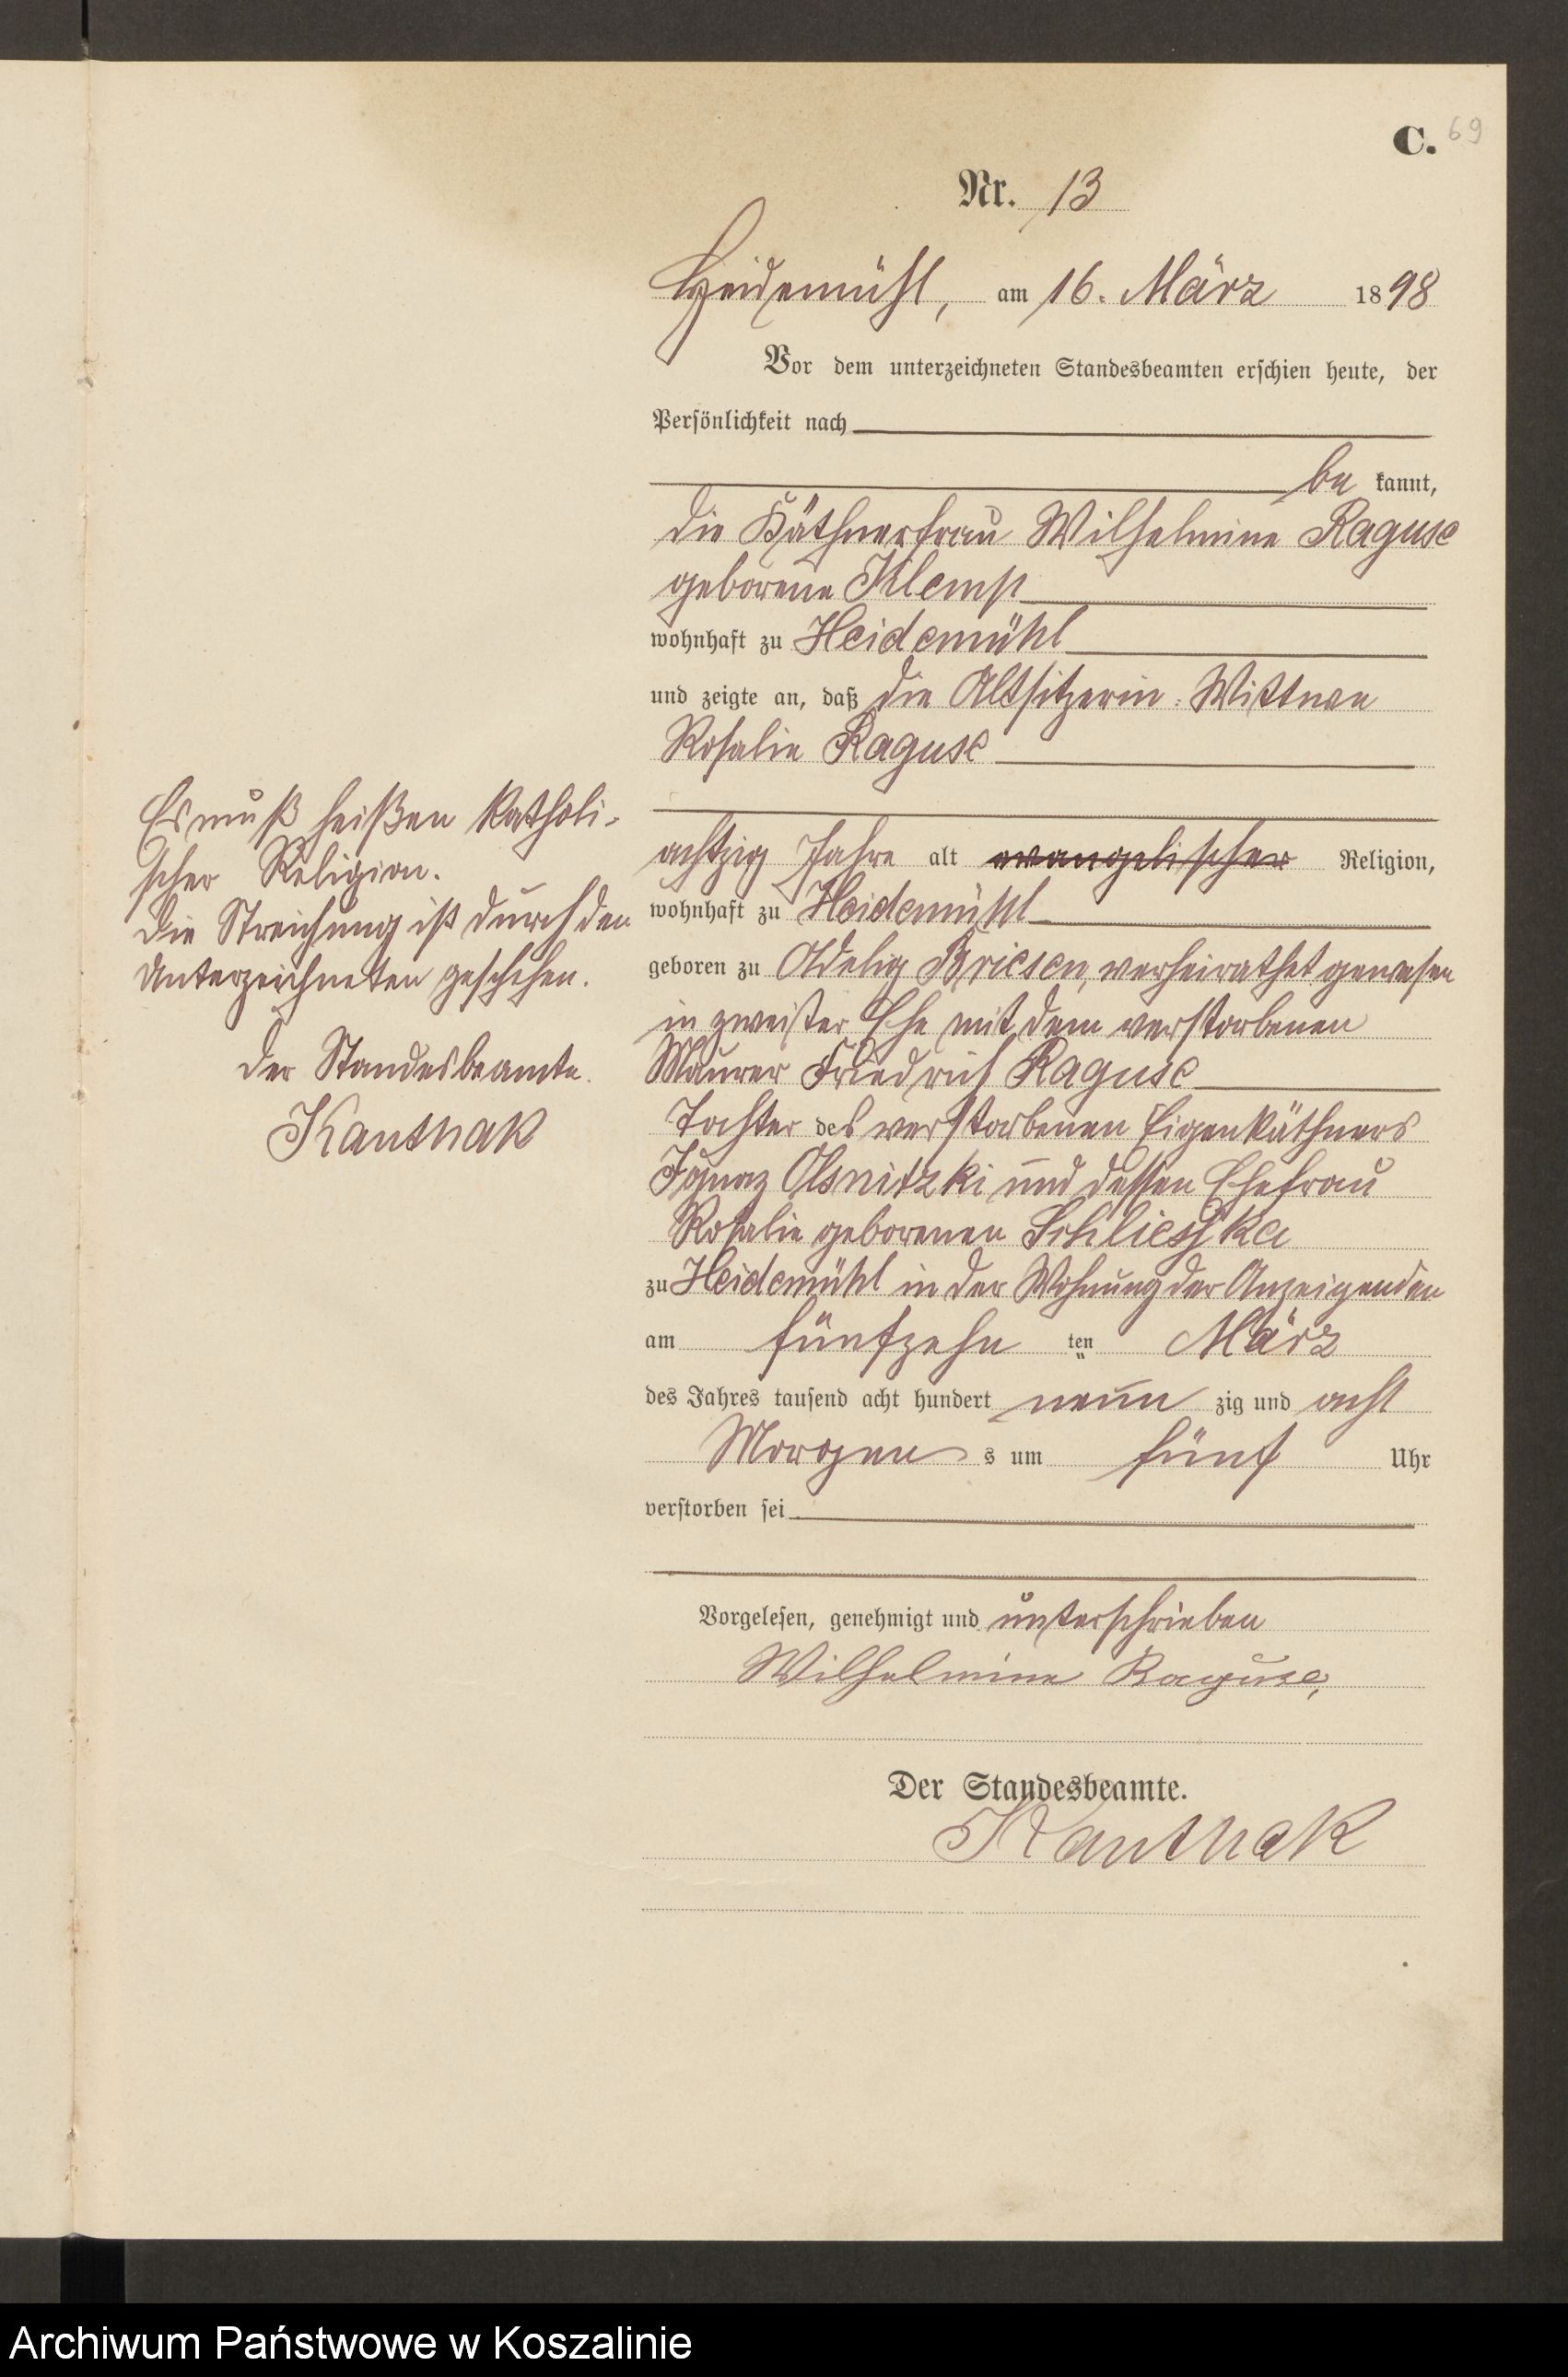 C. 69
Nr. 13
Heidemühl, am 16. März 1898
Vor dem unterzeichneten Standesbeamten erschien heute, der
Persönlichkeit nach
be kannt,
die Käthnerfrau Wilhelmine Raguse
geborene Klemp
wohnhaft zu Heidemühl
und zeigte an, daß die Altsitzerin-Wittwe
Rosalie Raguse
achtzig Jahre alt evangelischer Religion,
wohnhaft zu Heidemühl
geboren zu Adelig Briesen, verheirathet gewesen
in zweiter Ehe mit dem verstorbenen
Maurer Friedrich Raguse
Tochter des verstorbenen Eigenkäthners
Ignaz Olsnitzki und dessen Ehefrau
Rosalie geborenen Schliesske
zu Heidemühl in der Wohnung der Anzeigenden
am fünfzehn ten März
des Jahres tausend acht hundert neun zig und acht
Morgen s um fünf Uhr
verstorben sei
Vorgelesen, genehmigt und unterschrieben
Wilhelmine Raguse,
Der Standesbeamte.
Kanthak
Es muß heißen katholi-
scher Religion.
Die Streichung ist durch den
Unterzeichneten geschehen.
Der Standesbeamte.
Kanthak
Archiwum Państwowe w Koszalinie